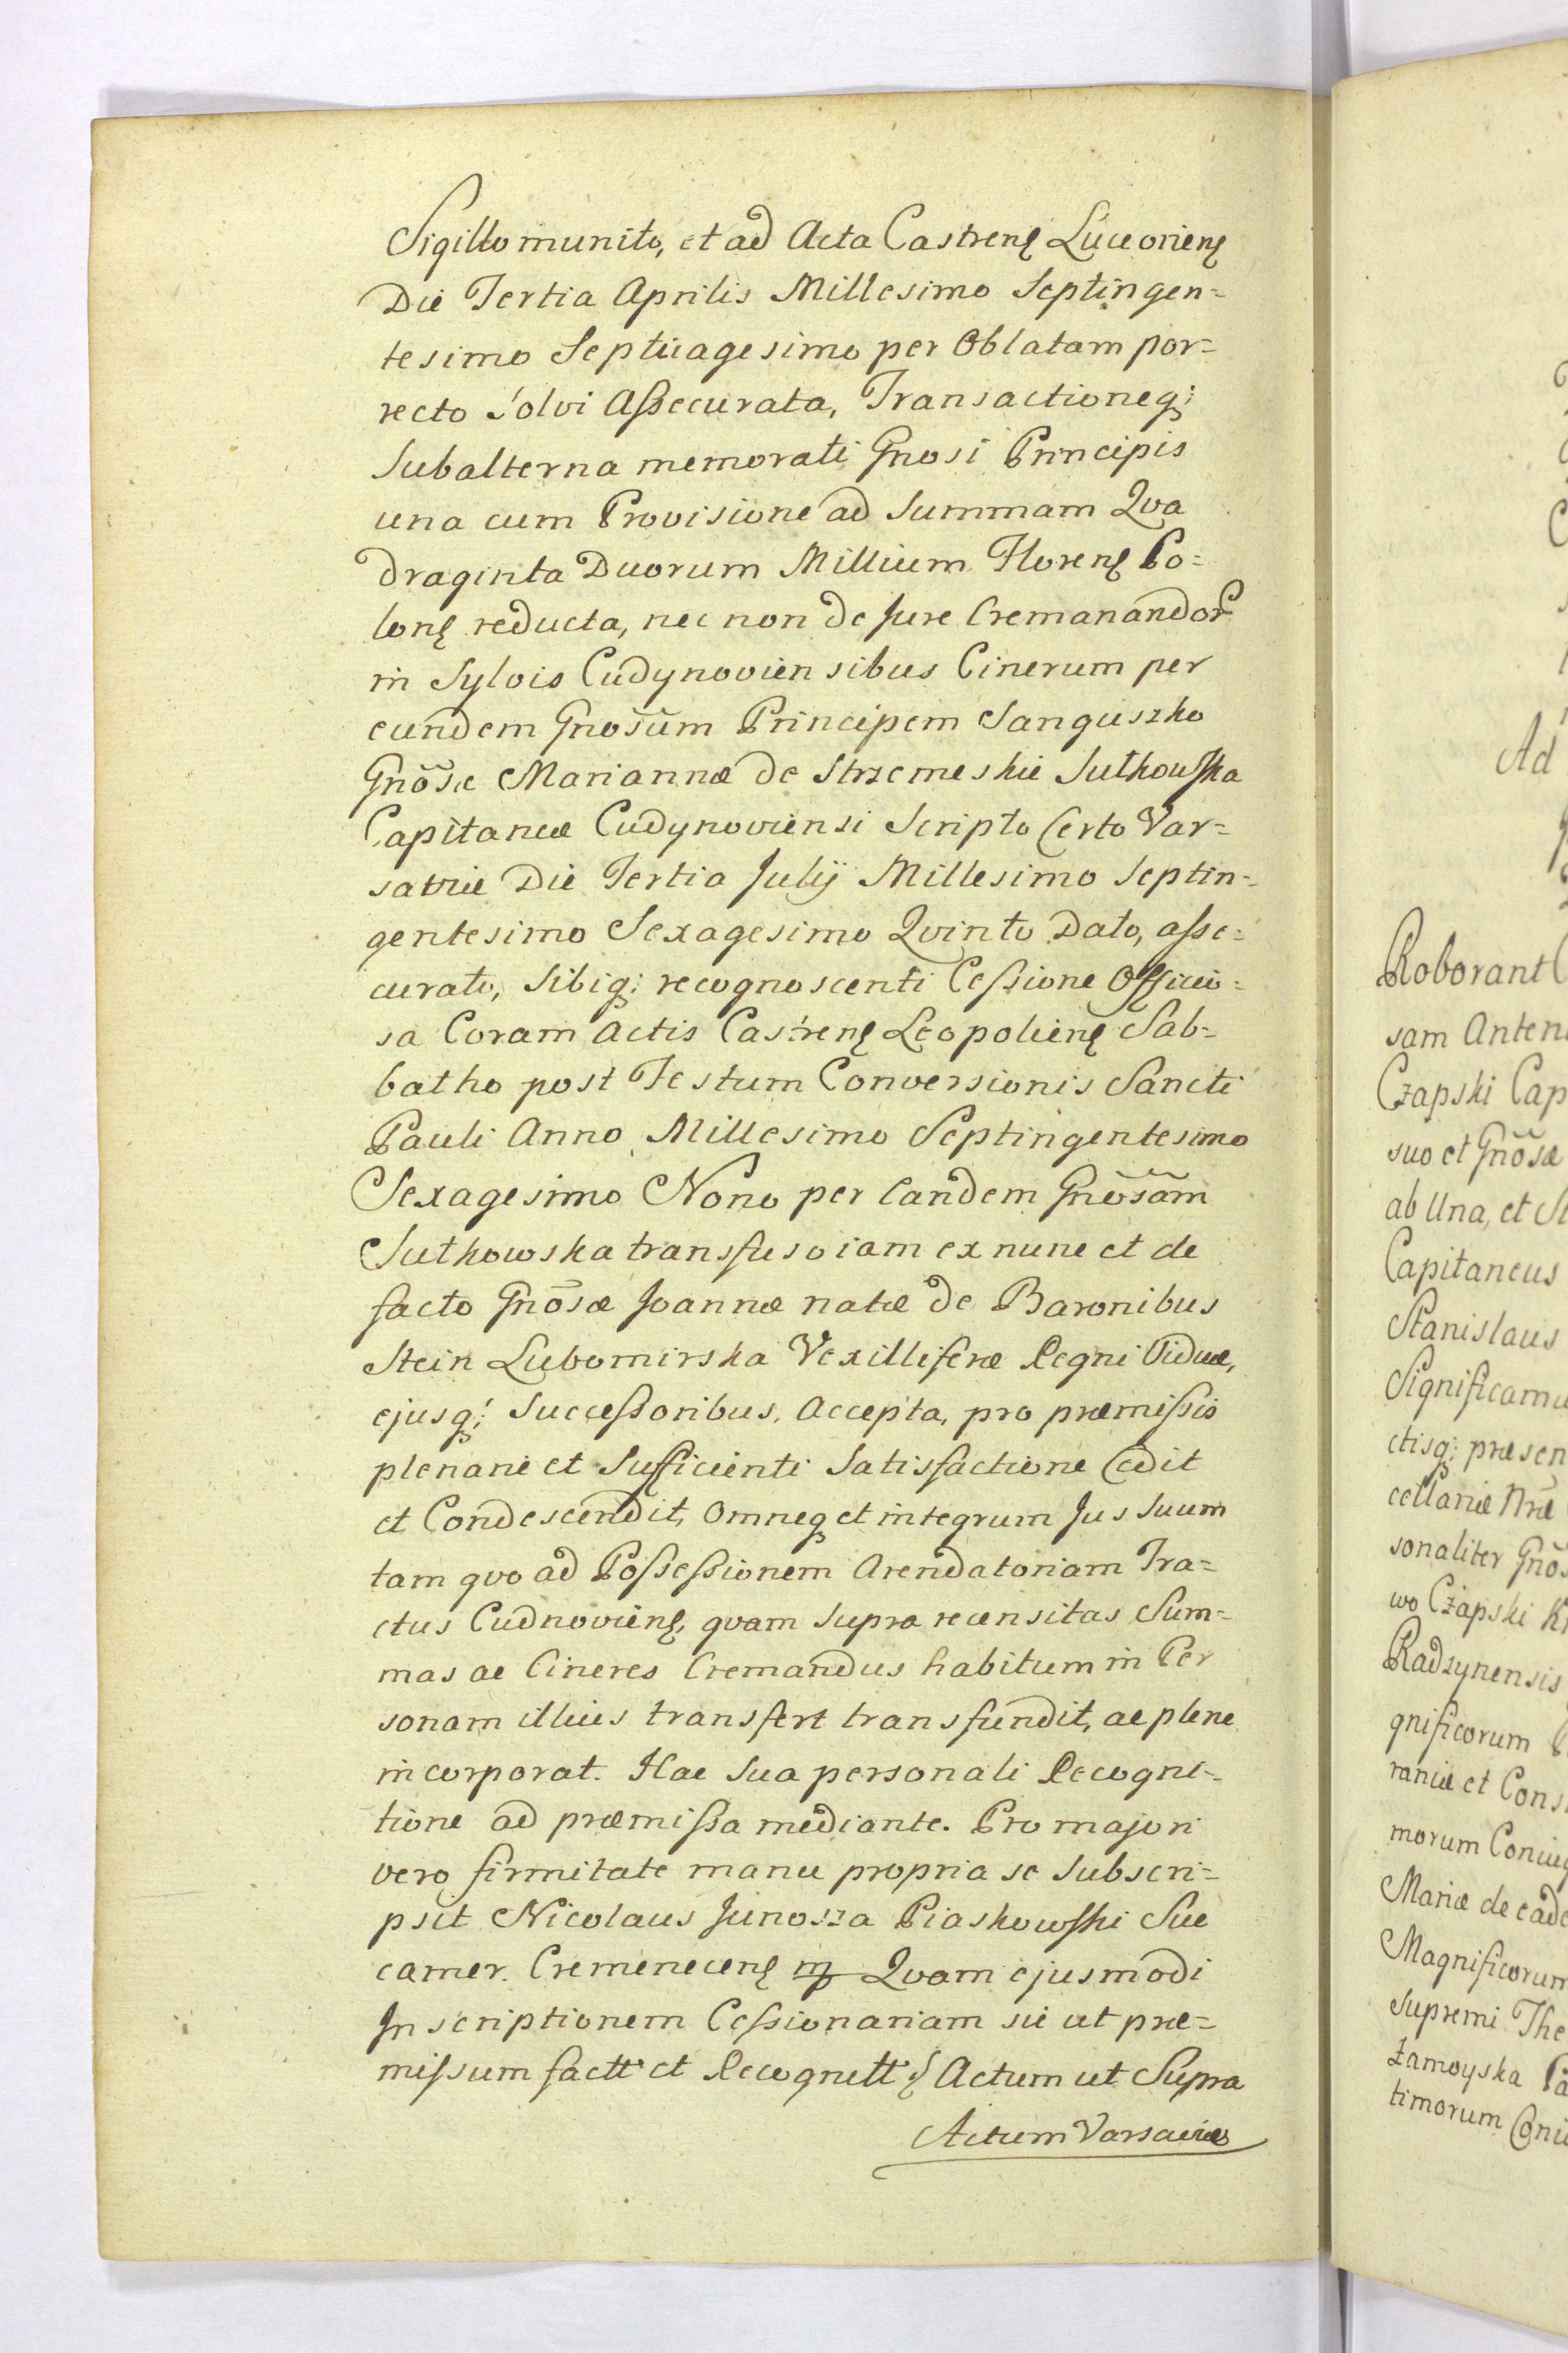 Sigillo munito, et ad Acta Castrenẛ Luceorienẛ
Die Tertia Aprilis Millesimo Septingen=
tesimo Septuagesimo per Oblatam por=
recto solvi Assecurata, Transactioneq;
Subalterna memorati Gnosi Principis
una cum Provisione ad Summam Qva
draginta Duorum Millium Florenẛ Po=
lonẛ reducta, nec non de Jure Cremanandor
in Sylvis Cudynoviensibus Cinerum per
eundem Gnõsum Principem Sanguszko
Gnõsæ Mariannæ de Strzemeskie Sutkowska
Capitaneæ Cudynoviensi Scripto Certo Var=
saviæ Die Tertia Julij Millesimo Septin=
gentesimo Sexagesimo Qvinto Dato, asse=
curato, Sibiq; recognoscenti Cessione Officio=
sa Coram Actis Castrenẛ Leopolienẛ Sab=
batho post Festum Conversionis Sancti
Pauli Anno Millesimo Septingentesimo
Sexagesimo Nono per Eandem Gnõsam
Sutkowska transfuso iam ex nunc et de
facto Gnõsæ Joannæ natæ de Baronibus
Stein Lubomirska Vexilliferæ Regni Viduæ,
ejusq; Successoribus, Accepta, pro præmissis
plenarie et Sufficienti Satisfactione Cedit
et Condescendit, Omneq et integrum Jus Suum
tam qvo ad Possessionem Arendatoriam Tra=
ctus Cudnovienẛ, qvam Supra recensitas Sum=
mas ac Cineres Cremandus habitum in Per
sonam illius transfert transfundit, ac plene
incorporat. Hac Sua personali Recogni=
tione ad præmissa mediante. Pro majori
vero firmitate manu propria se Subscri=
psit Nicolaus Junosza Piaskowski Suc
camer. Cremenecenẛ mp Qvam ejusmodi
Inscriptionem Cessionariam sic ut præ=
missum factt et Recognitt. Actum ut Supra
Actum Varsaviæ
Ad
Roborant
sam Anten
Czapski Cap
suo et Gnõsæ
ab Una, et
Capitaneus
Stanislaus
Significamu
ctisq; præsen
cellariæ Nræ
sonaliter Gnõs
wo Czapski
Radzynensis
gnificorum
raniæ et Cons
morum Coniug
Mariæ de eade
Magnificorum
Supremi The
Zamoyska
timorum Coni